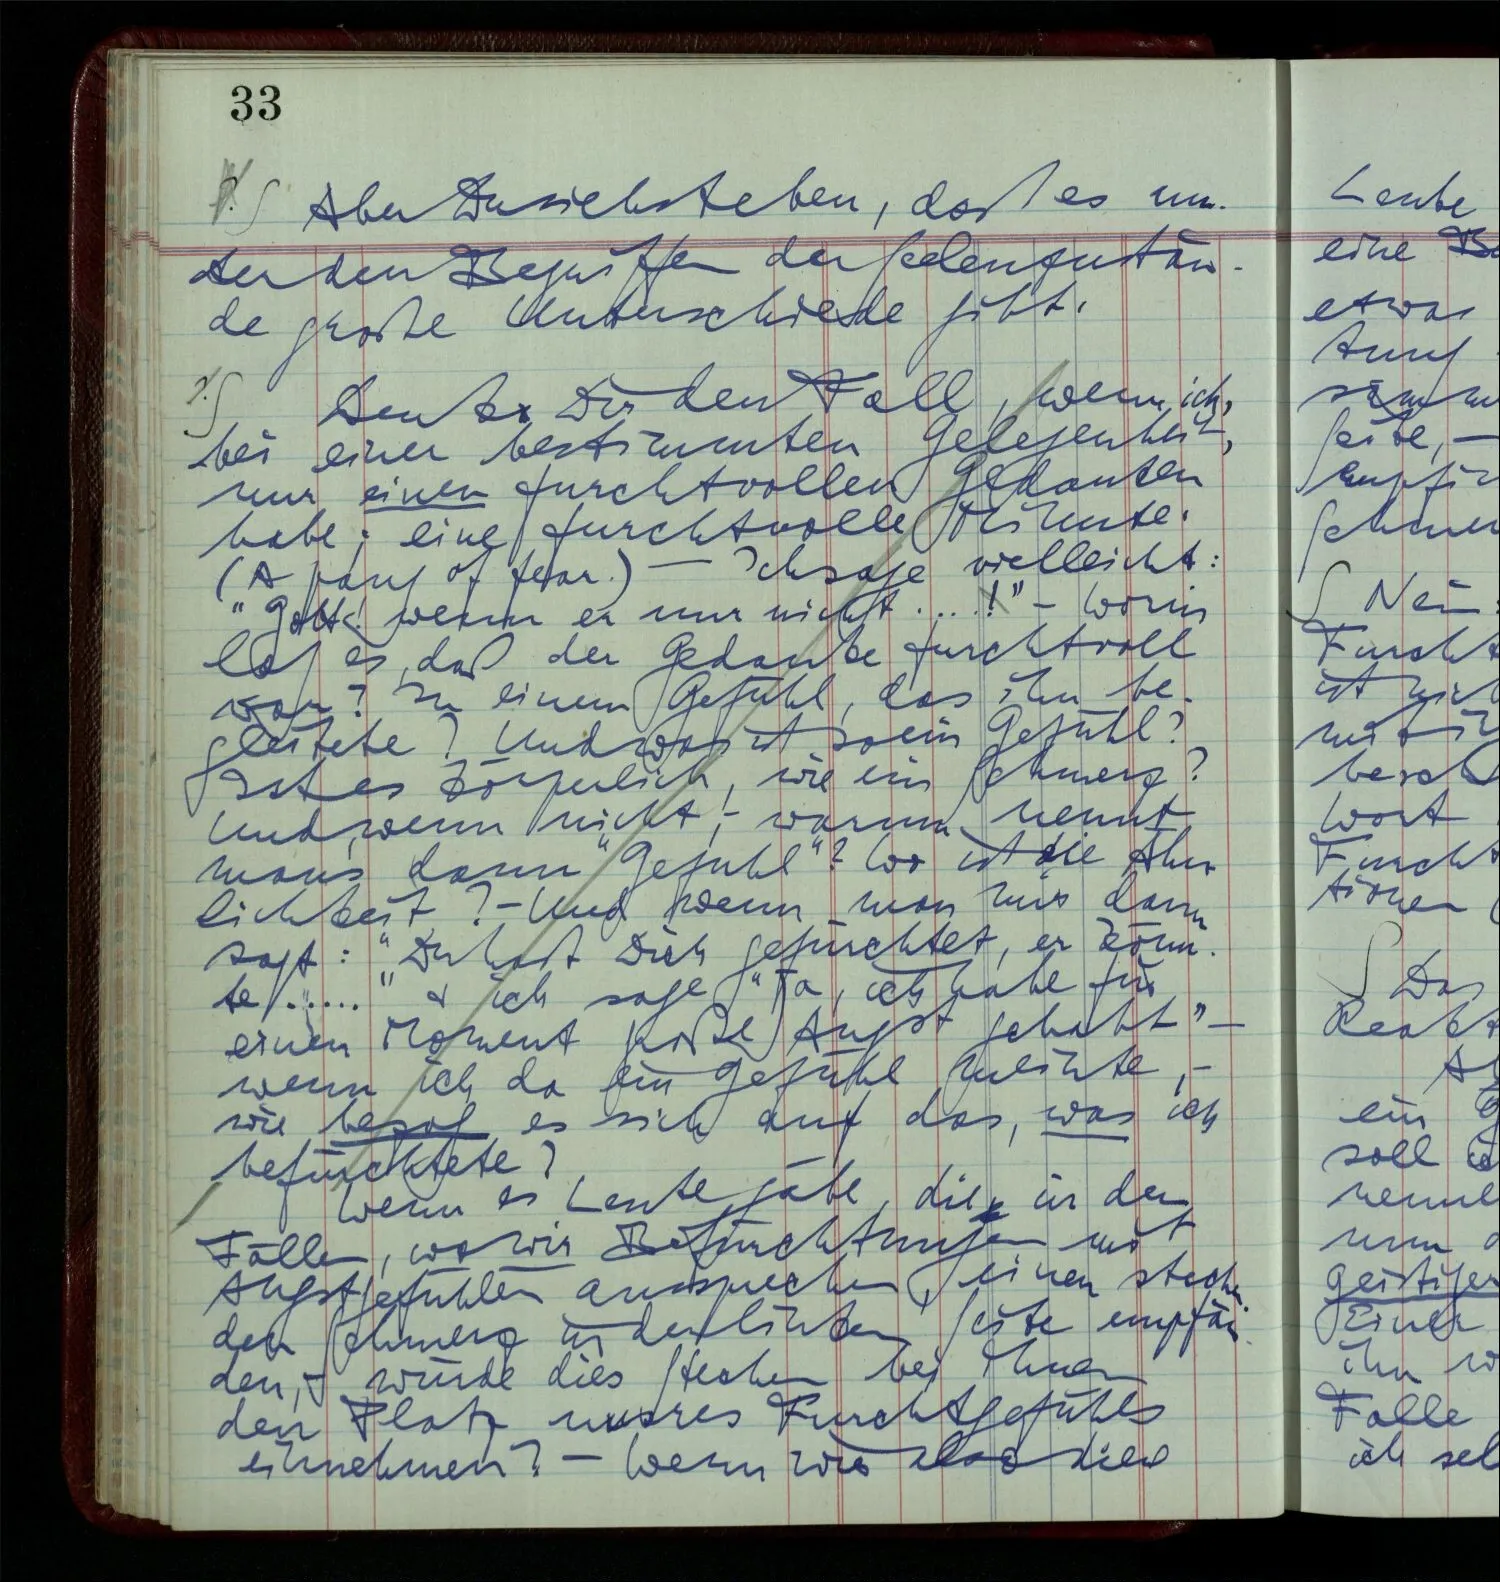 33
? ∫ Aber Du siehst eben, daß es un-
ter den Begriffen der Seelenzustän-
de große Unterschiede gibt.
? ∫ Denke Dir den Fall, wenn ich,
bei einer bestimmten Gelegenheit,
nur einen furchtvollen Gedanken
habe; eine furchtvolle Minute.
(A pang of fear.) — Ich sage vielleicht:
"Gott! wenn er nur nicht ....!" – Worin
lag es, daß der Gedanke furchtvoll
war? In einem Gefühl, das ihn be-
gleitete? Und was ist so ein Gefühl?
Ist es körperlich, wie ein Schmerz?
Und wenn nicht, – warum nennt
man's dann "Gefühl"? Wo ist die Ähn-
lichkeit? – Und wenn man mir dann
sagt: "Du hast Dich gefürchtet, er könn-
te ....." & ich sage "Ja, ich habe für
einen Moment große Angst gehabt" –
wenn ich da ein Gefühl meinte, –
wie bezog es sich auf das, was ich
befürchtete?
Wenn es Leute gäbe, die in den
Fällen, wo wir Befürchtungen mit
Angstgefühlen aussprechen, einen stechen-
den Schmerz in der linken Seite empfän-
den, – würde dies Stechen bei ihnen
den Platz unsres Furchtgefühls
einnehmen? – Wenn wir also diese
Leute
eine
etwas
∫ Nein
Furcht
ist
mit
Wort
Furcht
∫ Das
ein
soll
nun
geistigen
Einer
ihn
Falle
ich